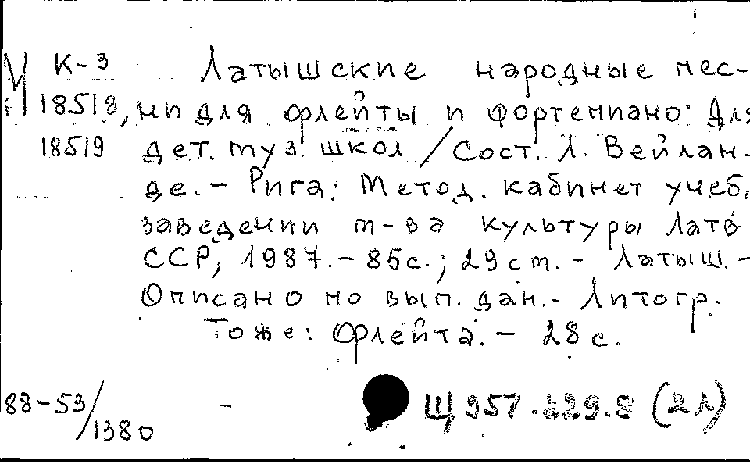 М К-3 Латышские народные пес-
18518, ни для флейты и фортепиано: Для
18519 дет. муз. школ / Сост. Л. Вейлан-
де. – Рига: Метод. кабинет учеб.
заведений м-ва культуры Латв
ССР, 1987. – 85 с.; 29 см. – Латыш. –
Описано по вып. дан. – Литогр.
То же: Флейта. – 28 с.
88-53/1380 – Щ957.829.8 (2Л)